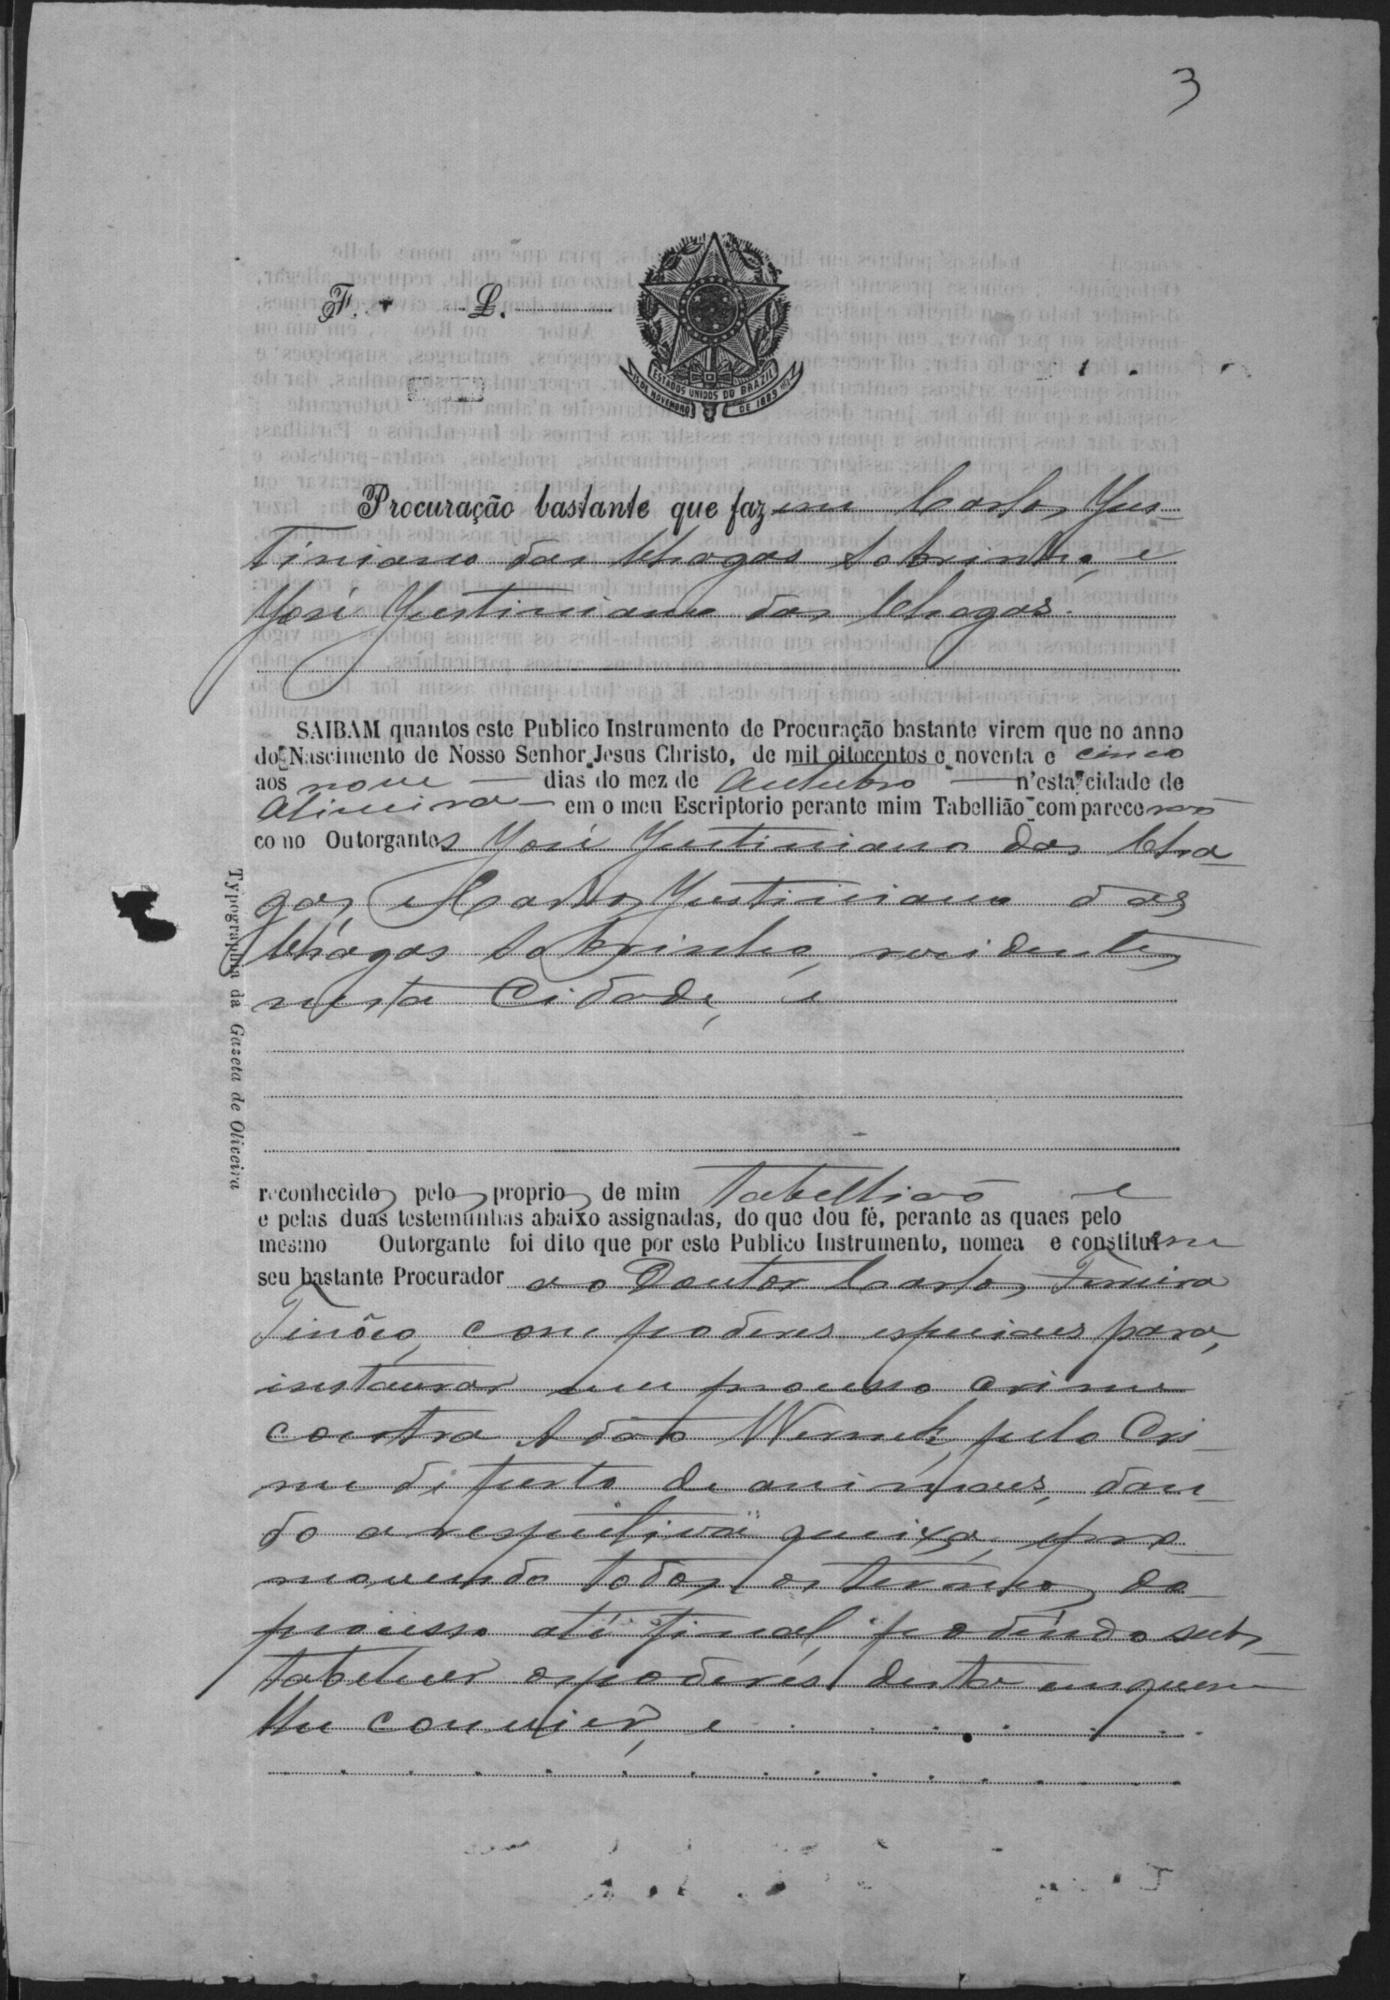 3
F. L.
ESTADOS UNIDOS DO BRAZIL
15 DE NOVEMBRO DE 1889
Procuração bastante que fazem Carlos Jus-
tiniano das Chagas Sobrinho, e
José Justiniano das Chagas.
SAIBAM quantos este Publico Instrumento de Procuração bastante virem que no anno
do Nascimento de Nosso Senhor Jesus Christo, de mil oitocentos e noventa e cinco
aos nove dias do mez de Outubro n'esta cidade de
Oliveira em o meu Escriptorio perante mim Tabellião comparecerão
como Outorgantes José Justiniano das Cha-
gas, e Carlos Justiniano das
Chagas Sobrinho, residentes
nesta Cidade, e
reconhecidos pelos proprios de mim Tabellião e
e pelas duas testemunhas abaixo assignadas, do que dou fé, perante as quaes pelo
mesmo Outorgante foi dito que por este Publico Instrumento, nomea e constituem
seu bastante Procurador ao Doutor Carlos Ferreira
Tinôco, com poderes especiaes para,
instaurar um processo crime
contra Adão Werneck, pelo Cri-
me de furto de animaes, dan-
do a respectiva queixa, e pro-
movendo todos os termos do
processo até final, podendo subs-
tabelecer os poderes desta em quem
lhe convier, e
Typographia da Gazeta de Oliveira